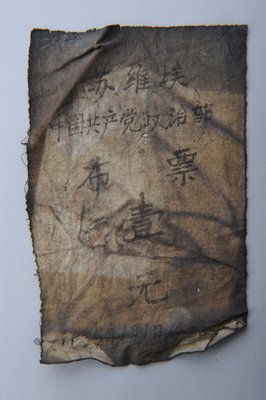 苏维埃
中国共产党政治部
布票
壹
元